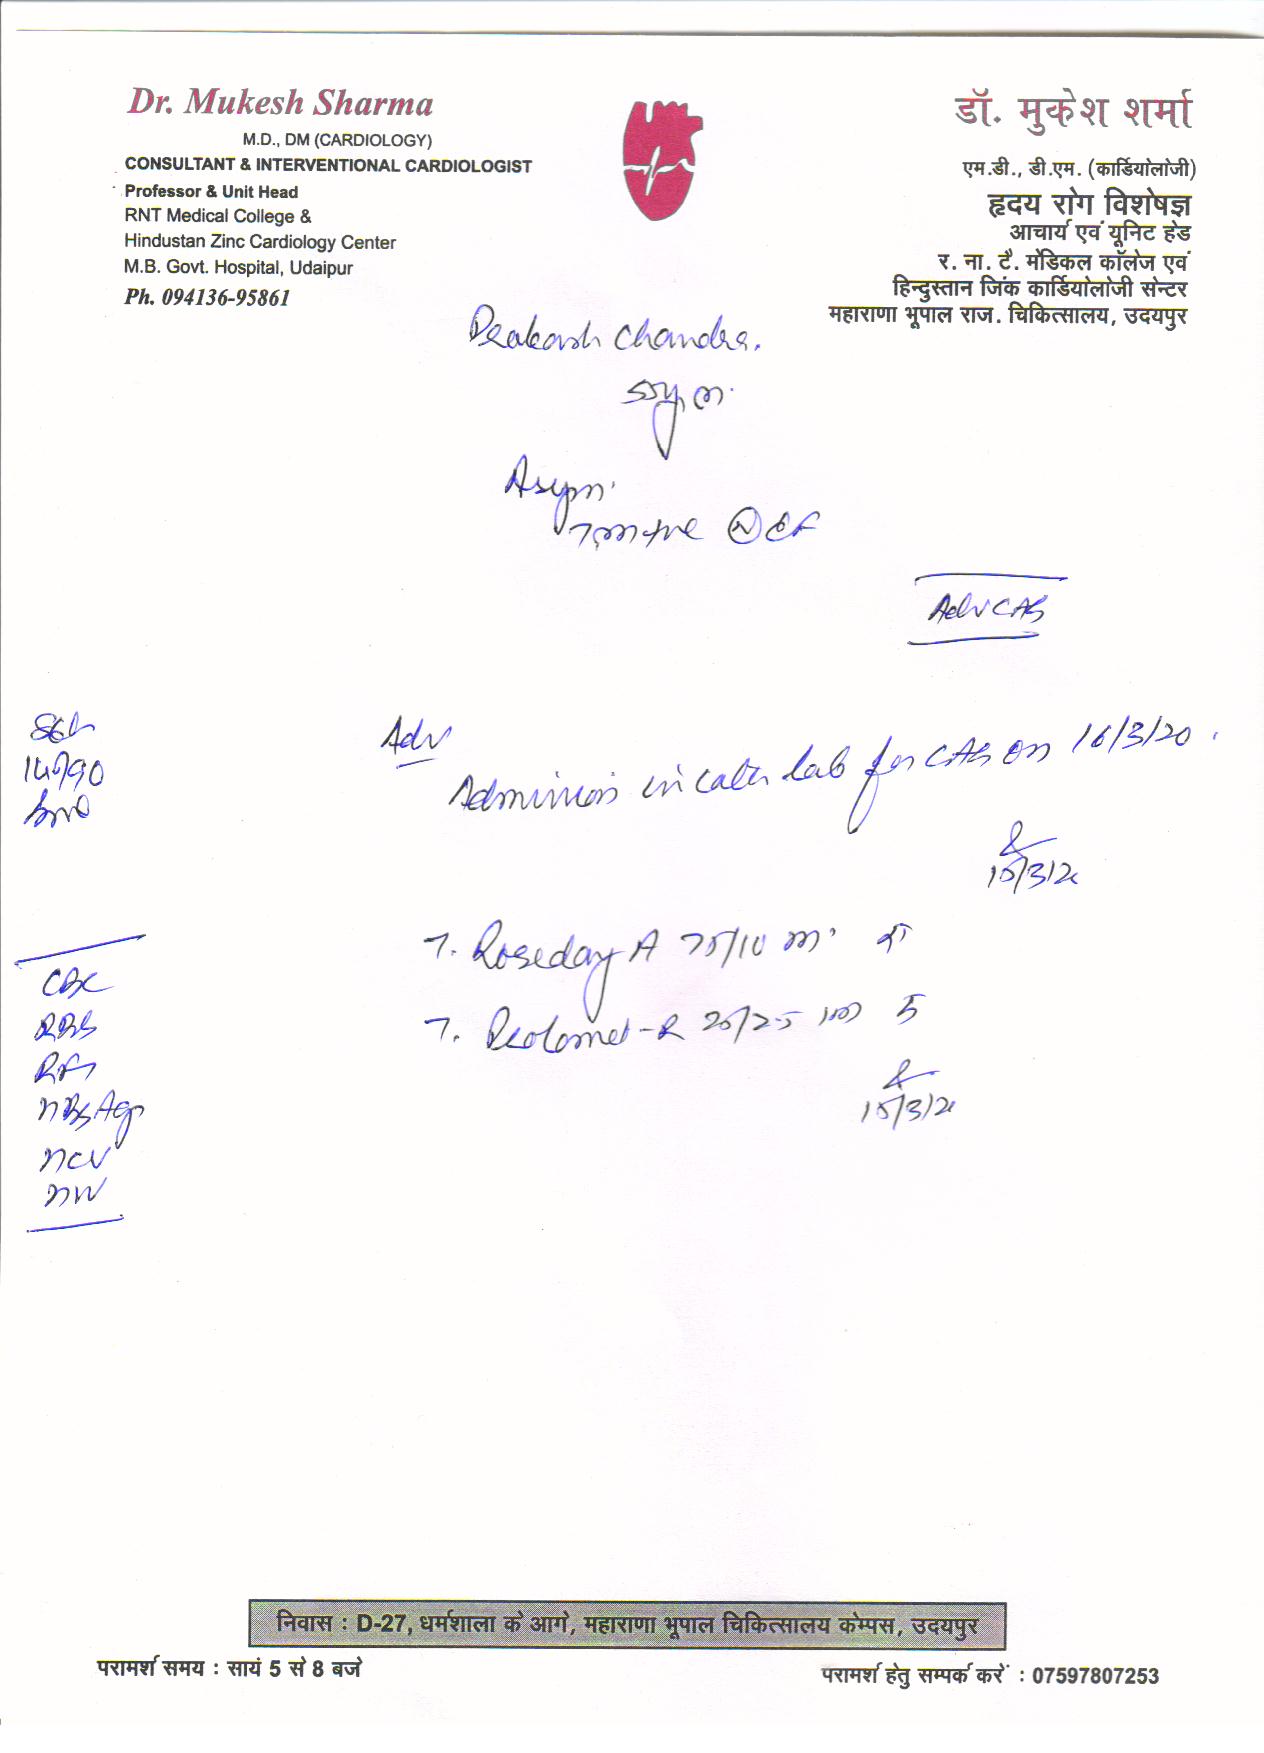 Dr. Mukesh Sharma
M.D., DM (CARDIOLOGY)
CONSULTANT & INTERVENTIONAL CARDIOLOGIST
Professor & Unit Head
RNT Medical College &
Hindustan Zinc Cardiology Center
M.B. Govt. Hospital, Udaipur
Ph. 094136-95861
डॉ. मुकेश शर्मा
एम.डी., डी.एम. (कार्डियोलोजी)
हृदय रोग विशेषज्ञ
आचार्य एवं यूनिट हेड
र. ना. टै. मेडिकल कॉलेज एवं
हिन्दुस्तान जिंक कार्डियोलोजी सेन्टर
महाराणा भूपाल राज. चिकित्सालय, उदयपुर
Prakash Chandra.
Asym.
TMT +ve (N) EF
Adv CAG
140/90
Adv
Admission in cath lab for CAG on 16/3/20
15/3/20
T. Roseday A 75/10
T. Prolomet-R 25/2.5
15/3/20
CBC
RBS
RFT
HBsAg
HCV
HIV
निवास : D-27, धर्मशाला के आगे, महाराणा भूपाल चिकित्सालय केम्पस, उदयपुर
परामर्श समय : सायं 5 से 8 बजे
परामर्श हेतु सम्पर्क करें : 07597807253